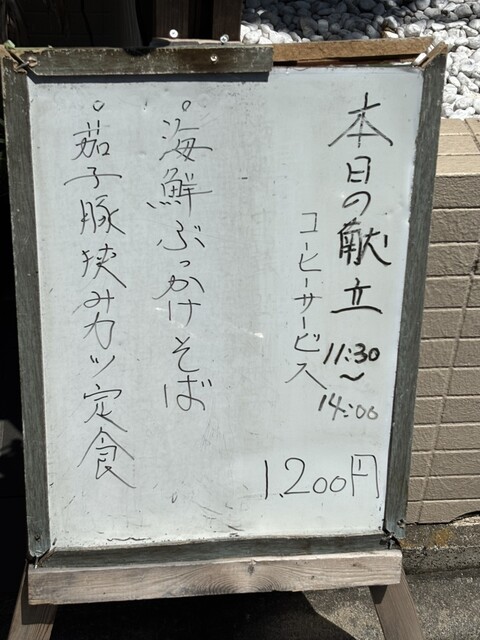 本日の献立
11:30
~
14:00
コーヒーサービス
1.200円
。海鮮ぶっかけそば
。茄子豚挟みカツ定食